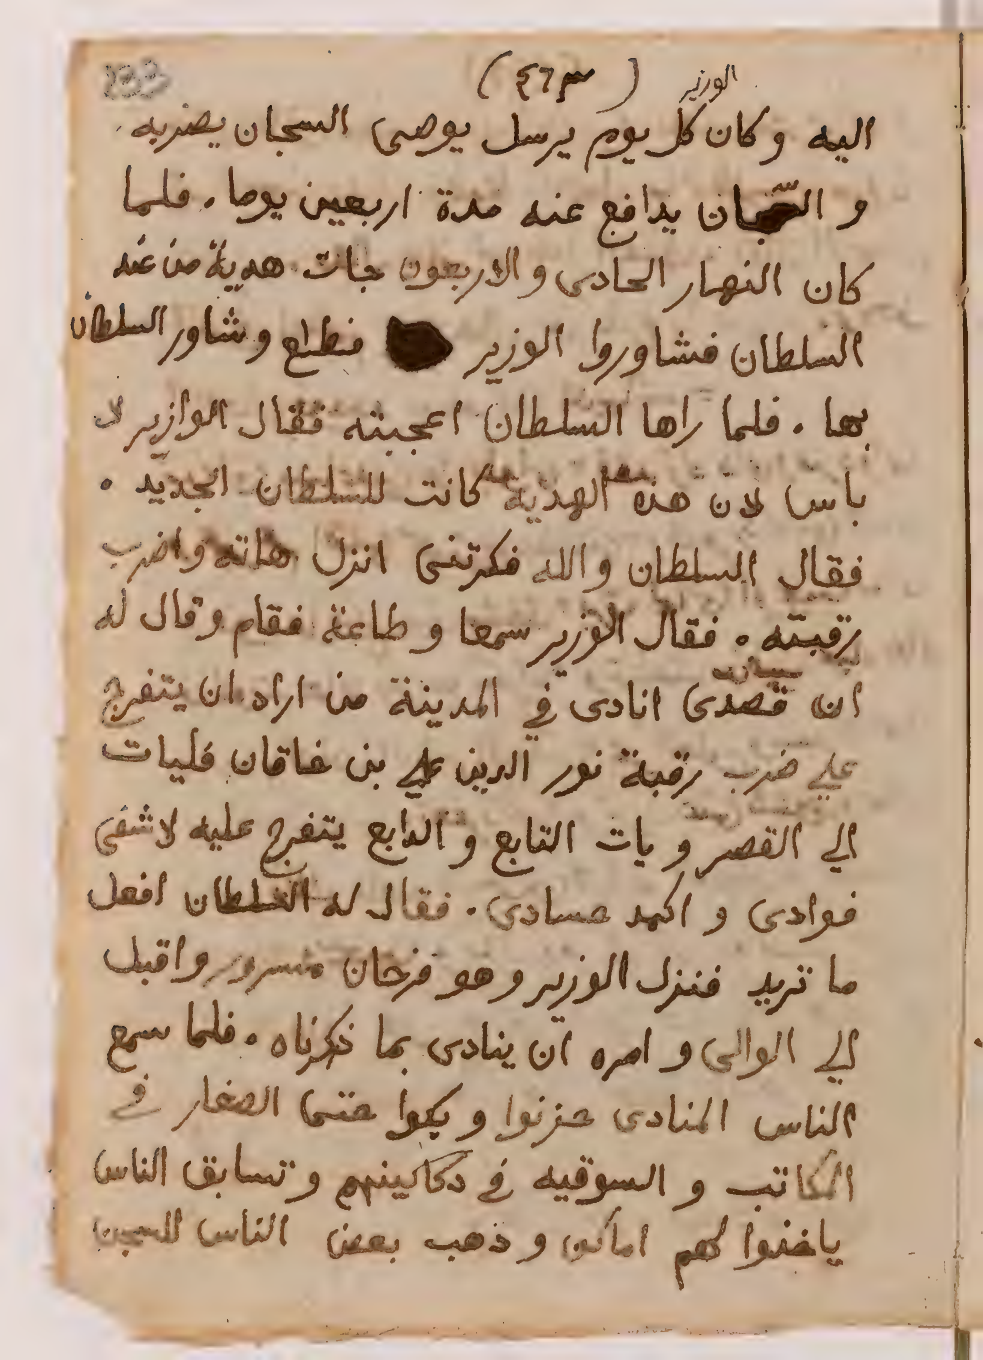 233
(٤٦٣)
الوزير
اليه وكان كل يوم يرسل يوصي السجان يضربه
و السّجان يدافع عنه مدة اربعين يوما . فلما
كان النهار الحادي والاربعون جات هدية من عند
السلطان فشاوروا الوزير فطلع وشاور السلطان
بها . فلما راها السلطان اعجبته فقال الوازير لا
باس لان هذه الهدية كانت للسلطان الجديد .
فقال السلطان والله فكرتني انزل هاته واضرب
رقبته . فقال الوزير سمعا و طاعة فقام وقال له
ان قصدي انادي في المدينة من اراد ان يتفرج
علي ضرب رقبة نور الدين علي بن خاقان فليات
الي القصر و يات التابع و الرابع يتفرج عليه لاشفى
فوادي و اكمد حسادي . فقال له السلطان افعل
ما تريد فنزل الوزير وهو فرحان مسرور واقبل
الي الوالي و امره ان ينادي بما ذكرناه . فلما سمع
الناس المنادى حزنوا و بكوا حتى الصغار في
المكاتب و السوقيه في دكاكينهم و تسابق الناس
ياخذوا لهم اماكن و ذهب بعض الناس للسجن